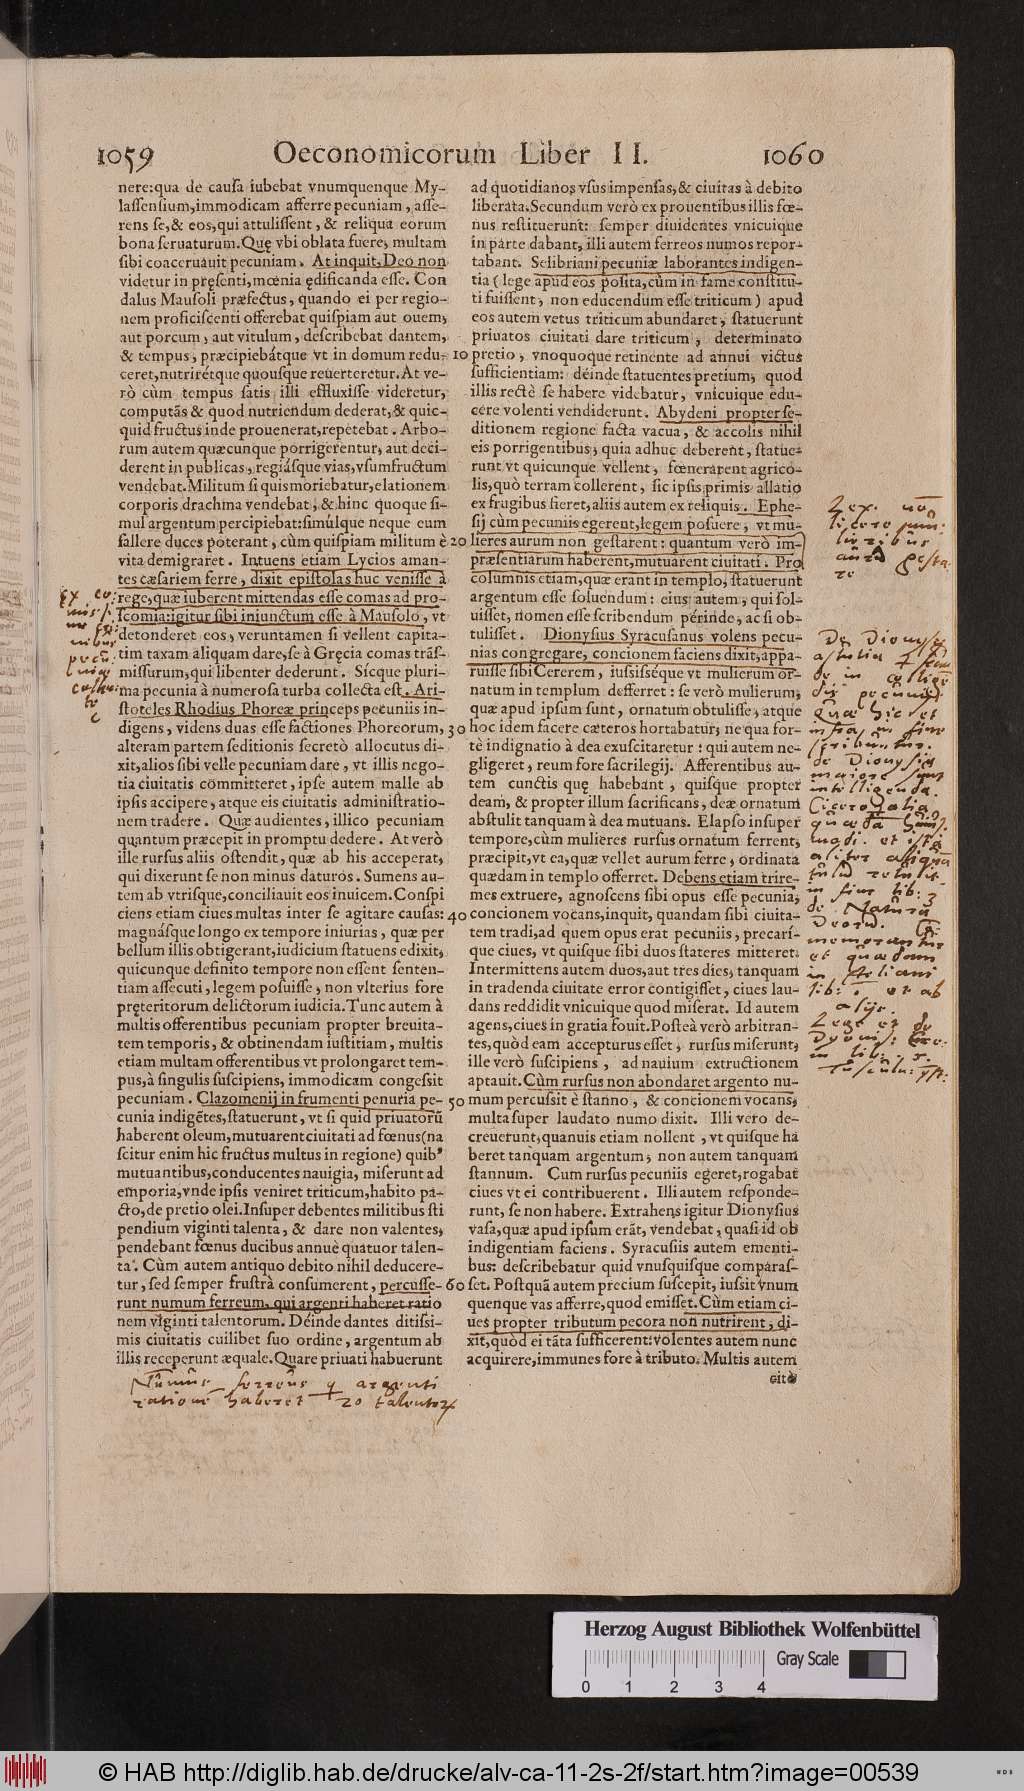 1059 Oeconomicorum Liber II. 1060
nere:qua de causa iubebat vnumquenque My-
lassensium,immodicam afferre pecuniam, asse-
rens se,& eos,qui attulissent, & reliqua eorum
bona seruaturum.Quę vbi oblata fuere, multam
sibi coaceruauit pecuniam. At inquit, Deo non
videtur in pręsenti,mœnia ędificanda esse. Con
dalus Mausoli præfectus, quando ei per regio-
nem proficiscenti offerebat quispiam aut ouem,
aut porcum, aut vitulum, describebat dantem,
& tempus, præcipiebátque vt in domum redu- 10
ceret,nutrirétque quousque reuerteretur. At ve-
rò cùm tempus satis illi effluxisse videretur,
computãs & quod nutriendum dederat,& quic-
quid fructus inde prouenerat,repetebat. Arbo-
rum autem quæcunque porrigerentur, aut deci-
derent in publicas, regiásque vias,vsumfructum
vendebat.Militum si quis moriebatur,elationem
corporis drachma vendebat, & hinc quoque si-
mul argentum percipiebat:simúlque neque eum
fallere duces poterant, cùm quispiam militum è 20
vita demigraret. Intuens etiam Lycios aman-
tes cæsariem ferre, dixit epistolas huc venisse à
rege,quæ iuberent mittendas esse comas ad pro-
scomia:igitur sibi iniunctum esse à Mausolo, vt
detonderet eos, veruntamen si vellent capita-
tim taxam aliquam dare,se à Gręcia comas trãs-
missurum,qui libenter dederunt. Sícque pluri-
ma pecunia à numerosa turba collecta est. Ari-
stoteles Rhodius Phoreæ princeps pecuniis in-
digens, videns duas esse factiones Phoreorum, 30
alteram partem seditionis secretò allocutus di-
xit,alios sibi velle pecuniam dare, vt illis nego-
tia ciuitatis cõmitteret, ipse autem malle ab
ipsis accipere, atque eis ciuitatis administratio-
nem tradere. Quæ audientes, illico pecuniam
quantum præcepit in promptu dedere. At verò
ille rursus aliis ostendit, quæ ab his acceperat,
qui dixerunt se non minus daturos. Sumens au-
tem ab vtrisque,conciliauit eos inuicem.Conspi
ciens etiam ciues multas inter se agitare causas: 40
magnásque longo ex tempore iniurias, quæ per
bellum illis obtigerant,iudicium statuens edixit,
quicunque definito tempore non essent senten-
tiam assecuti, legem posuisse, non vlterius fore
pręteritorum delictorum iudicia.Tunc autem à
multis offerentibus pecuniam propter breuita-
tem temporis, & obtinendam iustitiam, multis
etiam multam offerentibus vt prolongaret tem-
pus,à singulis suscipiens, immodicam congessit
pecuniam. Clazomenij in frumenti penuria pe- 50
cunia indigẽtes,statuerunt, vt si quid priuatorũ
haberent oleum,mutuarent ciuitati ad fœnus(na
scitur enim hic fructus multus in regione) quib⁹
mutuantibus,conducentes nauigia, miserunt ad
emporia,vnde ipsis veniret triticum,habito pa-
cto,de pretio olei.Insuper debentes militibus sti
pendium viginti talenta, & dare non valentes,
pendebant fœnus ducibus annuè quatuor talen-
ta. Cùm autem antiquo debito nihil deducere-
tur, sed semper frustrà consumerent, percusse- 60
runt numum ferreum, qui argenti haberet ratio
nem viginti talentorum. Déinde dantes ditissi-
mis ciuitatis cuilibet suo ordine, argentum ab
illis receperunt æquale. Quare priuati habuerunt
Ex co:
nibus
pecũ:
Nũmus ferreus q argenti
rationẽ haberet 20 talentor.
ad quotidianos vsus impensas,& ciuitas à debito
liberata.Secundum verò ex prouentibus illis fœ-
nus restituerunt: semper diuidentes vnicuique
in parte dabant, illi autem ferreos numos repor-
tabant. Selibriani pecuniæ laborantes indigen-
tia (lege apud eos posita,cùm in fame constitu-
ti fuissent, non educendum esse triticum) apud
eos autem vetus triticum abundaret, statuerunt
priuatos ciuitati dare triticum, determinato
pretio, vnoquoque retinente ad annui victus
sufficientiam: déinde statuentes pretium, quod
illis rectè se habere videbatur, vnicuique edu-
cere volenti vendiderunt. Abydeni propter se-
ditionem regione facta vacua, & accolis nihil
eis porrigentibus, quia adhuc deberent, statue-
runt vt quicunque vellent, fœnerarent agrico-
lis,quò terram collerent, sic ipsis primis allatio
ex frugibus fieret,aliis autem ex reliquis. Ephe-
sij cùm pecuniis egerent,legem posuere, vt mu-
lieres aurum non gestarent: quantum verò im-
præsentiarum haberent,mutuarent ciuitati. Pro
columnis etiam,quæ erant in templo, statuerunt
argentum esse soluendum: eius autem, qui sol-
uisset, nomen esse scribendum périnde, ac si ob-
tulisset. Dionysius Syracusanus volens pecu-
nias congregare, concionem faciens dixit,appa-
ruisse sibi Cererem, iussisséque vt mulierum or-
natum in templum defferret: se verò mulierum,
quæ apud ipsum sunt, ornatum obtulisse, atque
hoc idem facere cæteros hortabatur, ne qua for-
tè indignatio à dea exuscitaretur: qui autem ne-
gligeret, reum fore sacrilegij. Afferentibus au-
tem cunctis quę habebant, quisque propter
deam, & propter illum sacrificans, deæ ornatum
abstulit tanquam à dea mutuans. Elapso insuper
tempore,cùm mulieres rursus ornatum ferrent,
præcipit,vt ea,quæ vellet aurum ferre, ordinata
quædam in templo offerret. Debens etiam trire-
mes extruere, agnoscens sibi opus esse pecunia,
concionem vocans,inquit, quandam sibi ciuita-
tem tradi,ad quem opus erat pecuniis, precarí-
que ciues, vt quisque sibi duos stateres mitteret.
Intermittens autem duos,aut tres dies, tanquam
in tradenda ciuitate error contigisset, ciues lau-
dans reddidit vnicuique quod miserat. Id autem
agens,ciues in gratia fouit.Posteà verò arbitran-
tes,quòd eam accepturus esset, rursus miserunt,
ille verò suscipiens, ad nauium extructionem
aptauit. Cùm rursus non abondaret argento nu-
mum percussit è stanno, & concionem vocans,
multa super laudato numo dixit. Illi vero de-
creuerunt,quanuis etiam nollent, vt quisque ha
beret tanquam argentum, non autem tanquam
stannum. Cum rursus pecuniis egeret,rogabat
ciues vt ei contribuerent. Illi autem responde-
runt, se non habere. Extrahens igitur Dionysius
vasa,quæ apud ipsum erãt, vendebat, quasi id ob
indigentiam faciens. Syracusiis autem ementi-
bus: describebatur quid vnusquisque comparas-
set. Postquã autem precium suscepit, iussit vnum
quenque vas afferre,quod emisset. Cùm etiam ci-
ues propter tributum pecora non nutrirent, di-
xit,quòd ei tãta sufficerent:volentes autem nunc
acquirere,immunes fore à tributo. Multis autem
citò
Lex. nõ
aurũ gesta
re
De Dionysij
astutia
pecunijs
Quæ hic et
infra, in fine
scribuntur.
de Dionysio
maiore sunt
intelligenda.
in fine lib: 3
de Natura
Deorũ.
et quædam
in Aeliani
lib: 1 et ab
alijs.
Lege et de
in lib: 5.
Herzog August Bibliothek Wolfenbüttel
Gray Scale
0 1 2 3 4
© HAB http://diglib.hab.de/drucke/alv-ca-11-2s-2f/start.htm?image=00539